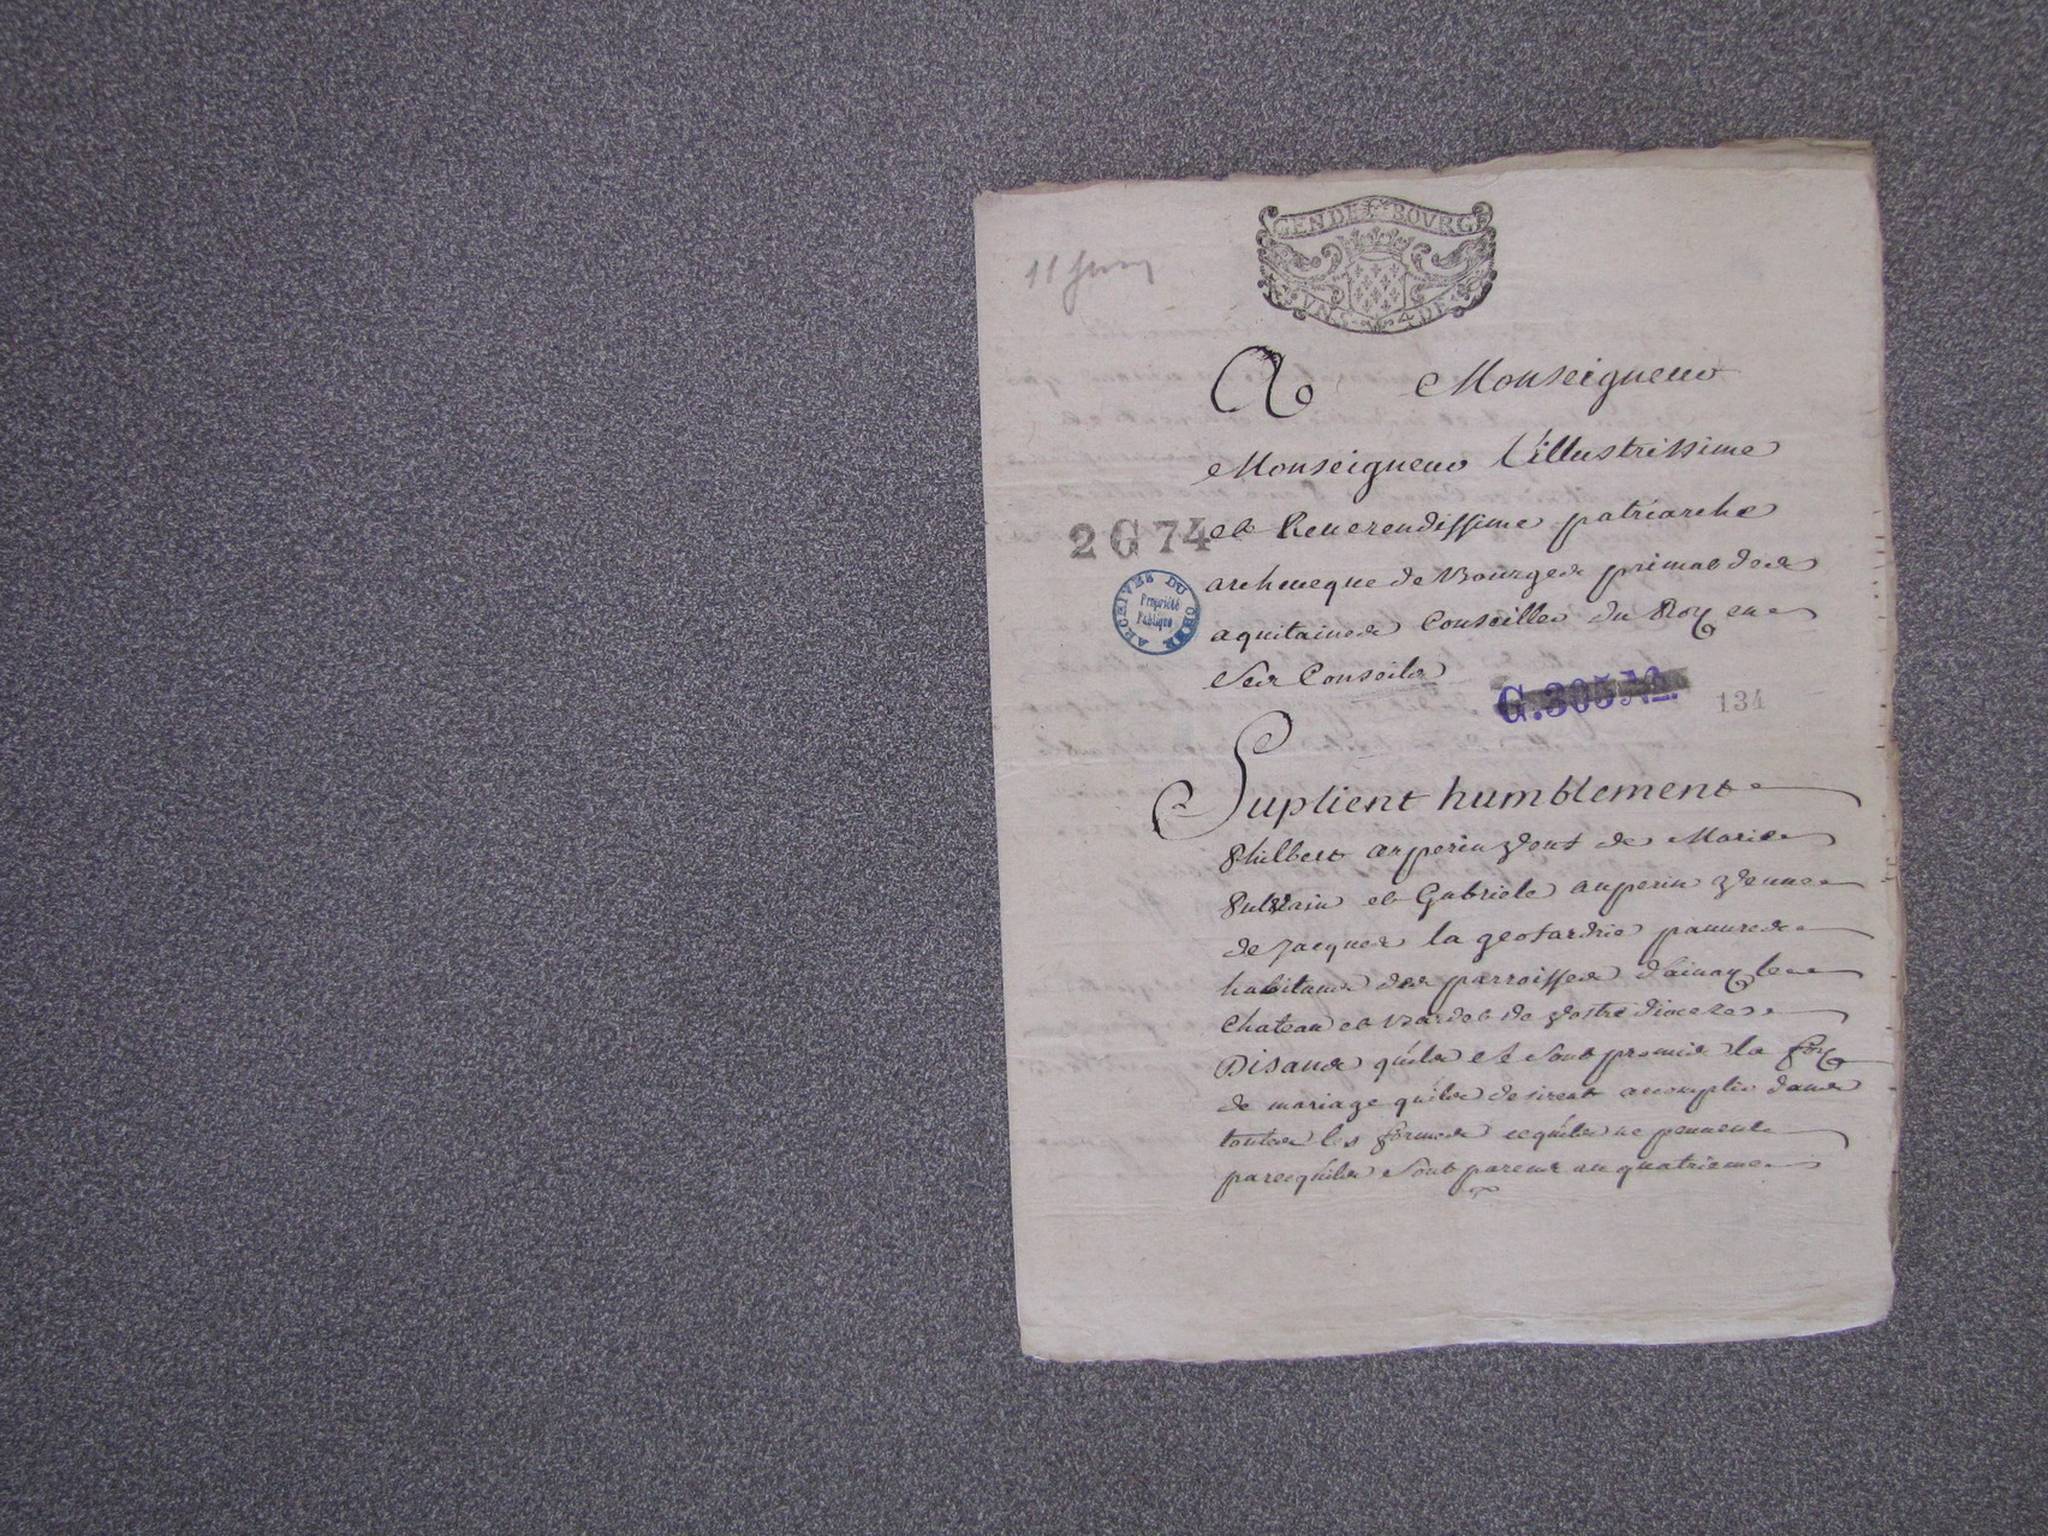 GENDE BOVRG
VNS 4 DE
11 Juin
A Monseigneur
Monseigneur L'illustrissime
2 G 74
et Reuerendissime patriarche
archeueque de Bourges primat des
ARCHIVES DU CHER
Propriété
Publique
aquitaines Conseiller du Roy en
Ses Conseils
G.305
134
Suplient humblement
Philbert auperin veuf de Marie
et Gabriele auperin veuue
de Jacques la pauures
habitans des parroisses d'ainay le
Chateau et Bardet de vostre dioceze
Disans qu'ils se sont promis la foy
de mariage qu'ils desirent acomplir dans
toutes les formes ce qu'ils ne peuuent
parcequ'ils sont parens au quatrieme